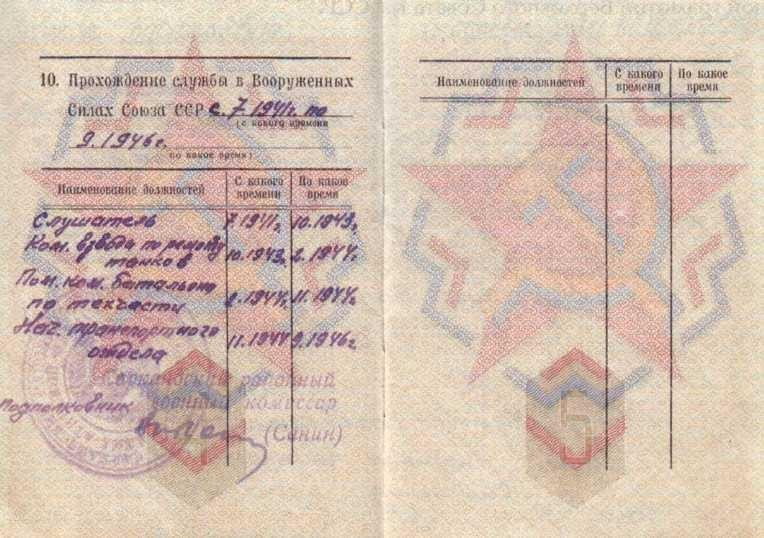 10. Прохождение службы в Вооруженных
Силах Союза ССР с 7.1941г. по
(с какого времени
9.1946г.
по какое время)
Наименование должностей С какого времени По какое время
Слушатель 7.1941г. 10.1943г.
Ком. взвода по ремонту
танков 10.1943г. 2.1944г.
Пом. ком. батальона
по техчасти 2.1944г. 11.1944г.
Нач. транспортного
отдела 11.1944 9.1946г.
районный
Подполковник военный комиссар
(Санин)
4
Наименование должностей С какого времени По какое время
5